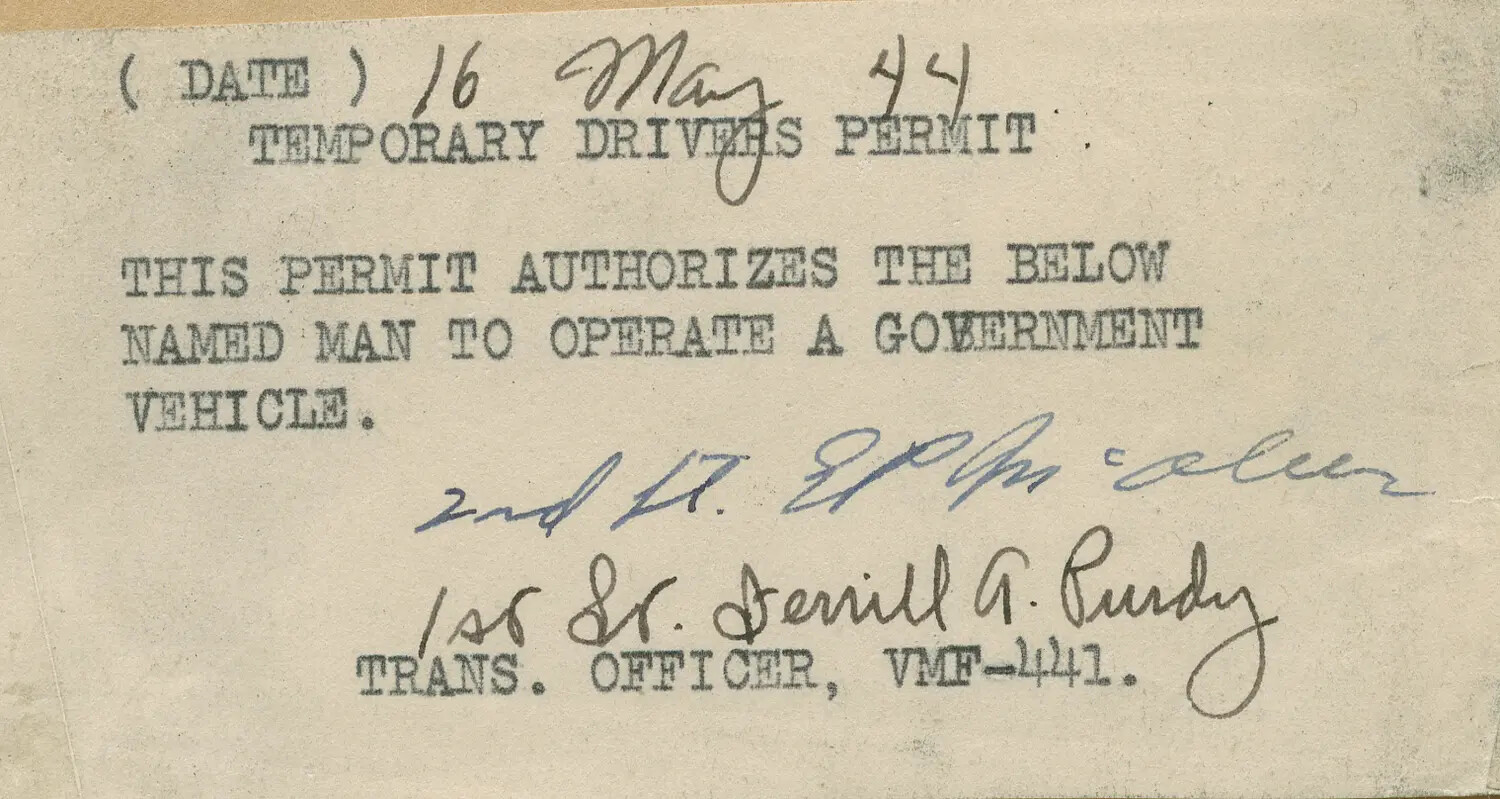 ( DATE ) 16 May 44
TEMPORARY DRIVERS PERMIT
THIS PERMIT AUTHORIZES THE BELOW
NAMED MAN TO OPERATE A GOVERNMENT
VEHICLE.
2nd Lt. EP
1st Lt. Jerrill A. Purdy
TRANS. OFFICER, VMF-441.